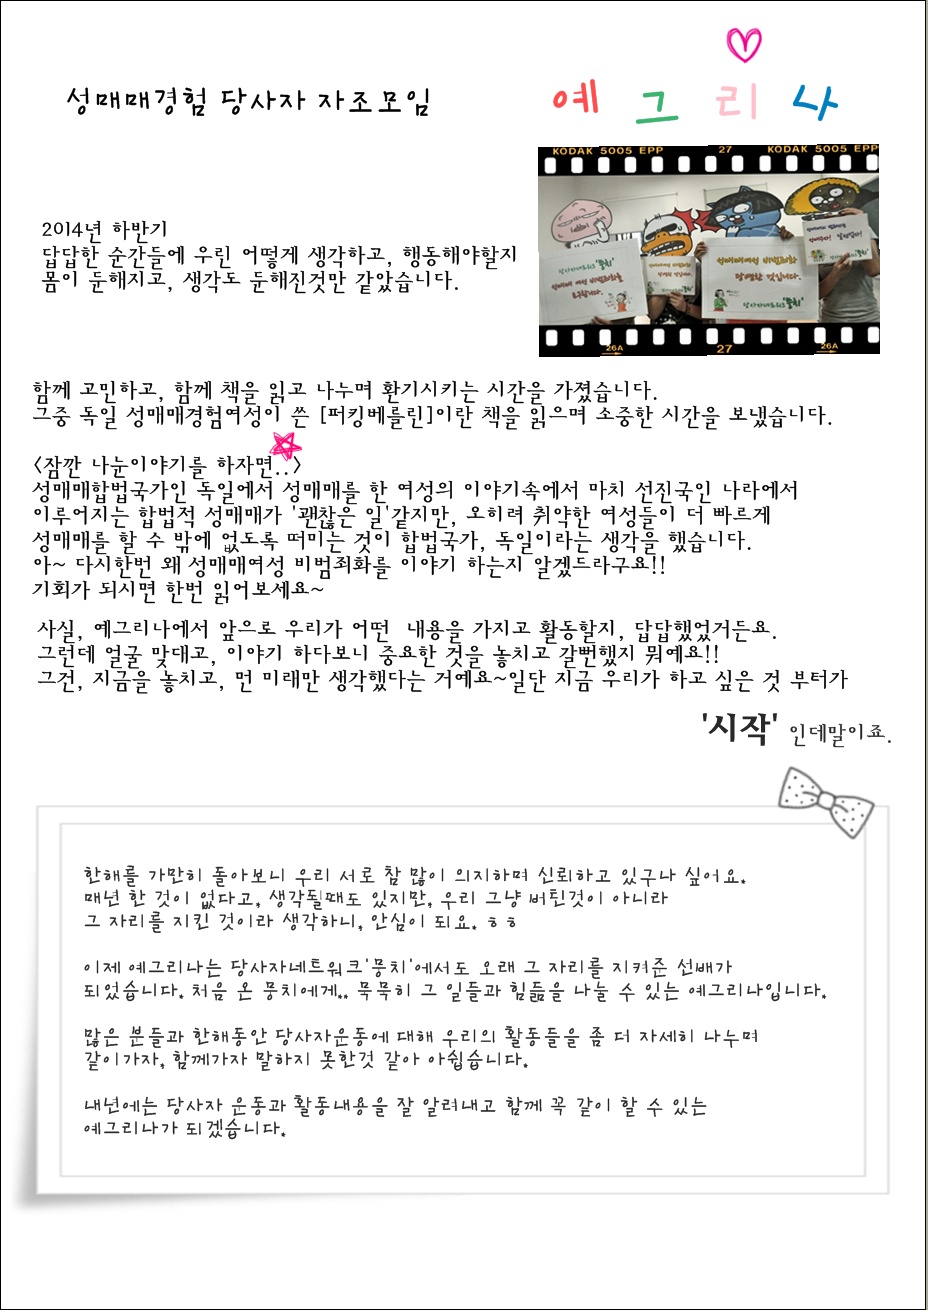 성매매경험 당사자 자조모임
예그리나
KODAK 5005 EPP 27 KODAK 5005 EPP
성매매여성 비범죄화
당연한 것입니다.
당사자네트워크 '뭉치'
26A 27 26A
2014년 하반기
답답한 순간들에 우린 어떻게 생각하고, 행동해야할지
몸이 둔해지고, 생각도 둔해진것만 같았습니다.
함께 고민하고, 함께 책을 읽고 나누며 환기시키는 시간을 가졌습니다.
그중 독일 성매매경험여성이 쓴 [퍼킹베를린]이란 책을 읽으며 소중한 시간을 보냈습니다.
<잠깐 나눈이야기를 하자면..>
성매매합법국가인 독일에서 성매매를 한 여성의 이야기속에서 마치 선진국인 나라에서
이루어지는 합법적 성매매가 '괜찮은 일'같지만, 오히려 취약한 여성들이 더 빠르게
성매매를 할 수 밖에 없도록 떠미는 것이 합법국가, 독일이라는 생각을 했습니다.
아~ 다시한번 왜 성매매여성 비범죄화를 이야기 하는지 알겠드라구요!!
기회가 되시면 한번 읽어보세요~
사실, 예그리나에서 앞으로 우리가 어떤 내용을 가지고 활동할지, 답답했었거든요.
그런데 얼굴 맞대고, 이야기 하다보니 중요한 것을 놓치고 갈뻔했지 뭐예요!!
그건, 지금을 놓치고, 먼 미래만 생각했다는 거예요~일단 지금 우리가 하고 싶은 것 부터가
'시작' 인데말이죠.
한해를 가만히 돌아보니 우리 서로 참 많이 의지하며 신뢰하고 있구나 싶어요.
매년 한 것이 없다고, 생각될때도 있지만, 우리 그냥 버틴것이 아니라
그 자리를 지킨 것이라 생각하니, 안심이 되요. ㅎㅎ
이제 예그리나는 당사자네트워크'뭉치'에서도 오래 그 자리를 지켜준 선배가
되었습니다. 처음 온 뭉치에게.. 묵묵히 그 일들과 힘듦을 나눌 수 있는 예그리나입니다.
많은 분들과 한해동안 당사자운동에 대해 우리의 활동들을 좀 더 자세히 나누며
같이가자, 함께가자 말하지 못한것 같아 아쉽습니다.
내년에는 당사자 운동과 활동내용을 잘 알려내고 함께 꼭 같이 할 수 있는
예그리나가 되겠습니다.